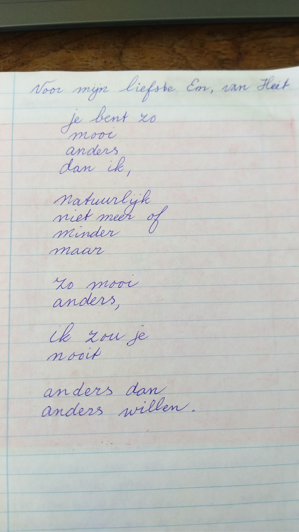 Voor mijn liefste Em, van Heit
je bent zo
mooi
anders
dan ik,
natuurlijk
niet meer of
minder
maar
zo mooi
anders,
ik zou je
nooit
anders dan
anders willen.